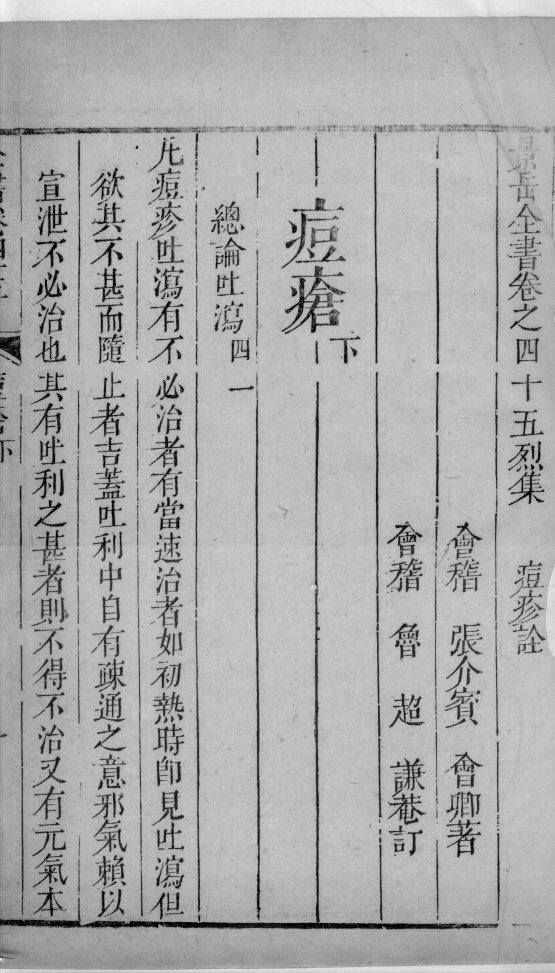 景岳全書卷之四十五烈集 痘疹詮
會稽 張介賓 會卿著
會稽 魯超 謙菴訂
痘瘡下
總論吐瀉四一
凡痘疹吐瀉有不必治者有當速治者如初熱時即見吐瀉但
欲其不甚而隨止者吉蓋吐利中自有疎通之意邪氣賴以
宣泄不必治也其有吐利之甚者則不得不治又有元氣本